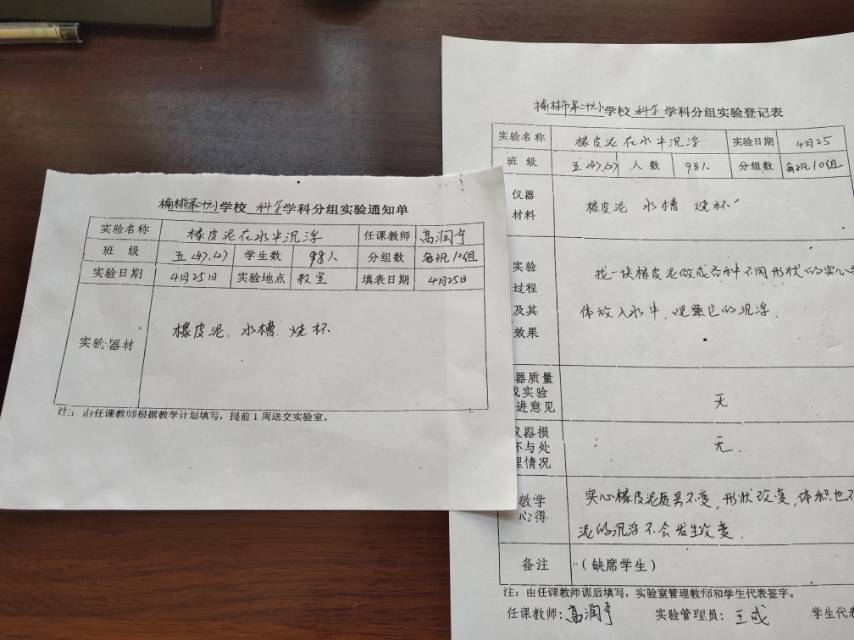 榆林市第二十小学校 科学学科分组实验通知单
实验名称 橡皮泥在水中沉浮 任课教师 高润宁
班 级 五(4).(6) 学生数 98人 分组数 每班10组
实验日期 4月25日 实验地点 教室 填表日期 4月25日
实验器材 橡皮泥、水槽、烧杯
注：由任课教师根据教学计划填写，提前1周送交实验室。
学校 科学学科分组实验登记表
实验名称 橡皮泥在水中沉浮 实验日期 4月25
班 级 五(4).(6) 人 数 98人 分组数 每班10组
仪器
材料
橡皮泥 水槽 烧杯
实验
过程
及其
效果
找一块橡皮泥做成各种不同形状的实心
体放入水中,观察它的沉浮.
器质量
或实验
进意见
无
仪器损
坏与处
理情况
无.
教学
心得
实心橡皮泥质量不变,形状改变,体积也不
泥的沉浮不会发生改变.
备注 (缺席学生)
注：由任课教师课后填写，实验室管理教师和学生代表签字。
任课教师:高润宁 实验管理员:王成 学生代表